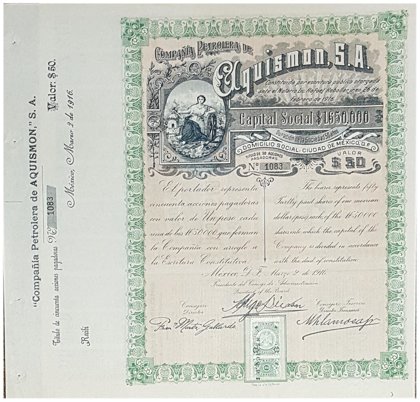 "Compañía Petrolera de AQUISMON," S. A.
Valor: $ 50.
México, Marzo 2 de 1916.
Título de cincuenta acciones pagadoras Nº 1083
Recibí
COMPAÑIA PETROLERA DE
Aquismon, S.A.
Constituida por escritura pública otorgada
ante el Notario Lic. Rafael
febrero de 1916.
Capital Social $1650,000
DOMICILIO SOCIAL: CIUDAD DE MEXICO, D.F.
PAGADORAS
Nº 1083
VALOR
$ 50
El portador representa
cincuenta acciones pagadoras
con valor de Un peso cada
una de las 1650,000 que forman
la Compañía con arreglo a
la Escritura Constitutiva.
The bearer represents fifty
share of one mexican
dollar pesos each of the 1650000
shares which the capital of the
Company is divided in accordance
with the deed of constitution.
México D.F. Marzo 2 de 1916.
Presidente del Consejo de Administración
President of the Board
Consejero
Director
Consejero Tesorero
Director Treasurer